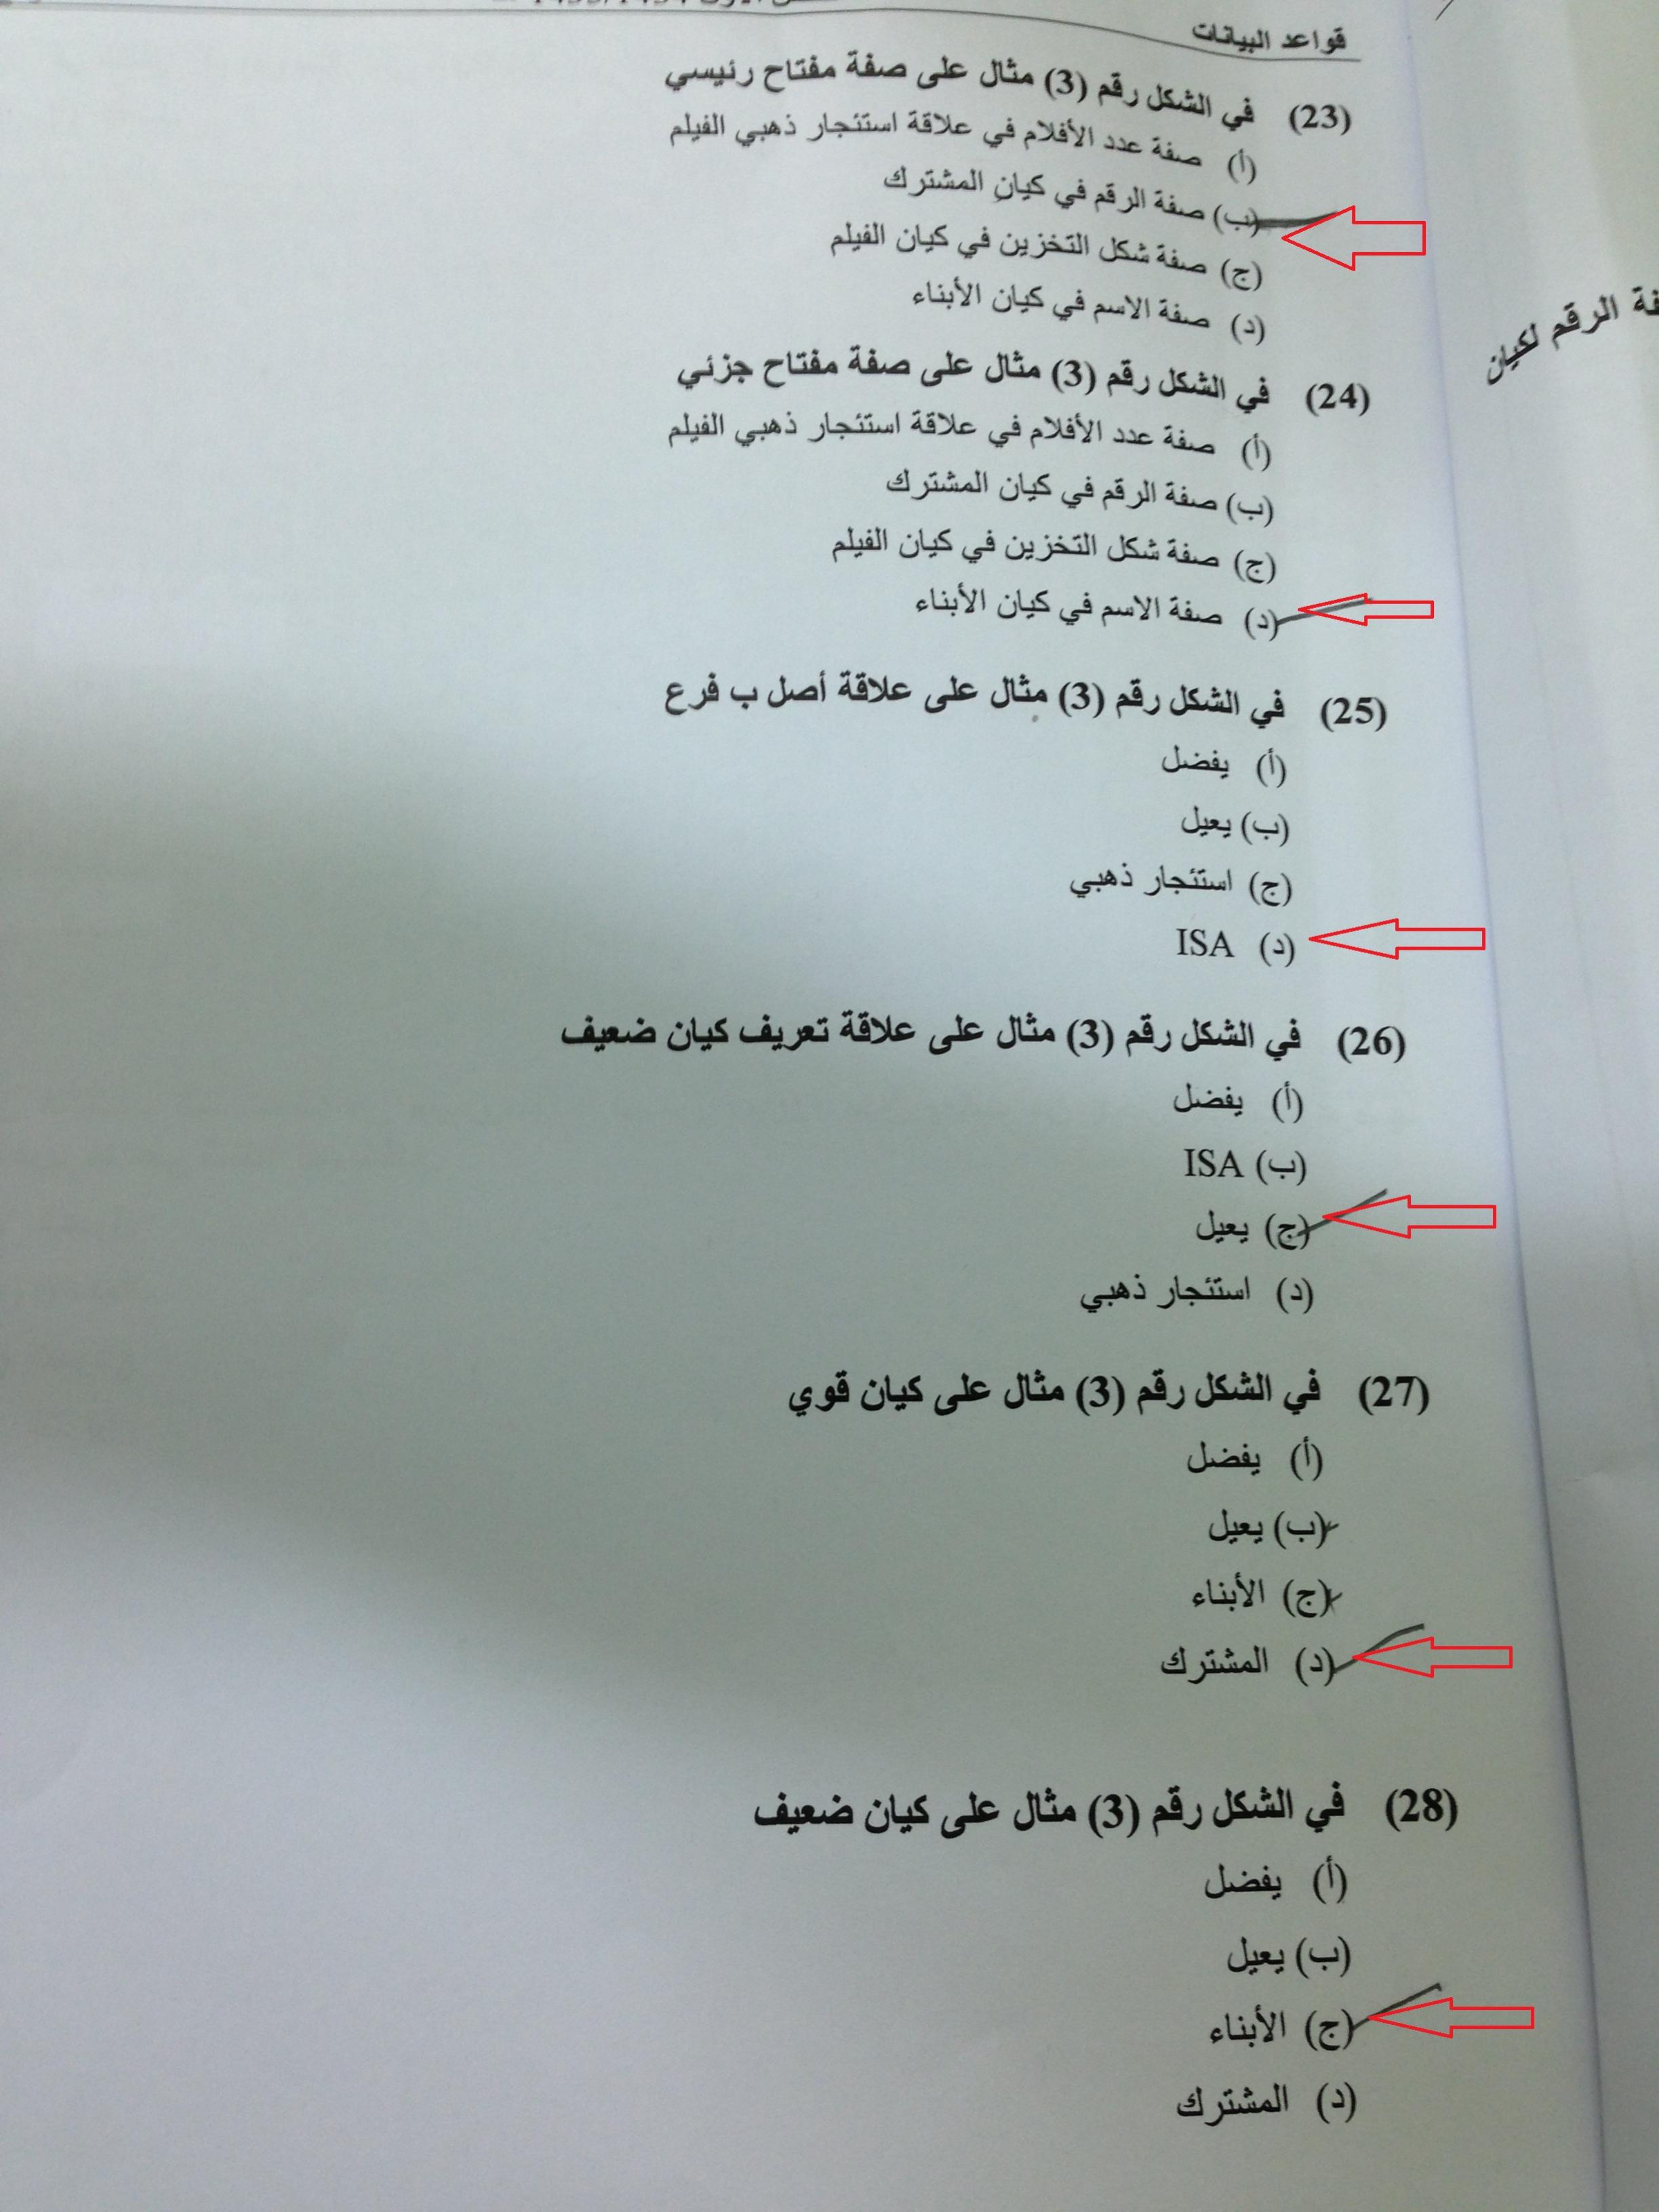 قواعد البيانات
(23) في الشكل رقم (3) مثال على صفة مفتاح رئيسي
(أ) صفة عدد الأفلام في علاقة استئجار ذهبي الفيلم
(ب) صفة الرقم في كيان المشترك
(ج) صفة شكل التخزين في كيان الفيلم
(د) صفة الاسم في كيان الأبناء
(24) في الشكل رقم (3) مثال على صفة مفتاح جزئي
(أ) صفة عدد الأفلام في علاقة استئجار ذهبي الفيلم
(ب) صفة الرقم في كيان المشترك
(ج) صفة شكل التخزين في كيان الفيلم
(د) صفة الاسم في كيان الأبناء
(25) في الشكل رقم (3) مثال على علاقة أصل ب فرع
(أ) يفضل
(ب) يعيل
(ج) استئجار ذهبي
(د) ISA
(26) في الشكل رقم (3) مثال على علاقة تعريف كيان ضعيف
(أ) يفضل
(ب) ISA
(ج) يعيل
(د) استئجار ذهبي
(27) في الشكل رقم (3) مثال على كيان قوي
(أ) يفضل
(ب) يعيل
(ج) الأبناء
(د) المشترك
(28) في الشكل رقم (3) مثال على كيان ضعيف
(أ) يفضل
(ب) يعيل
(ج) الأبناء
(د) المشترك
الرقم لكيان